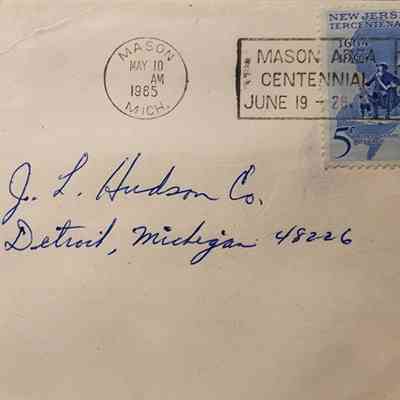 MASON
MAY 10
AM
1965
MICH.
MASON AREA
CENTENNIAL
JUNE 19 -
NEW JERS
TERCENTENA
1664
5¢
J. L. Hudson Co.
Detroit, Michigan 48226